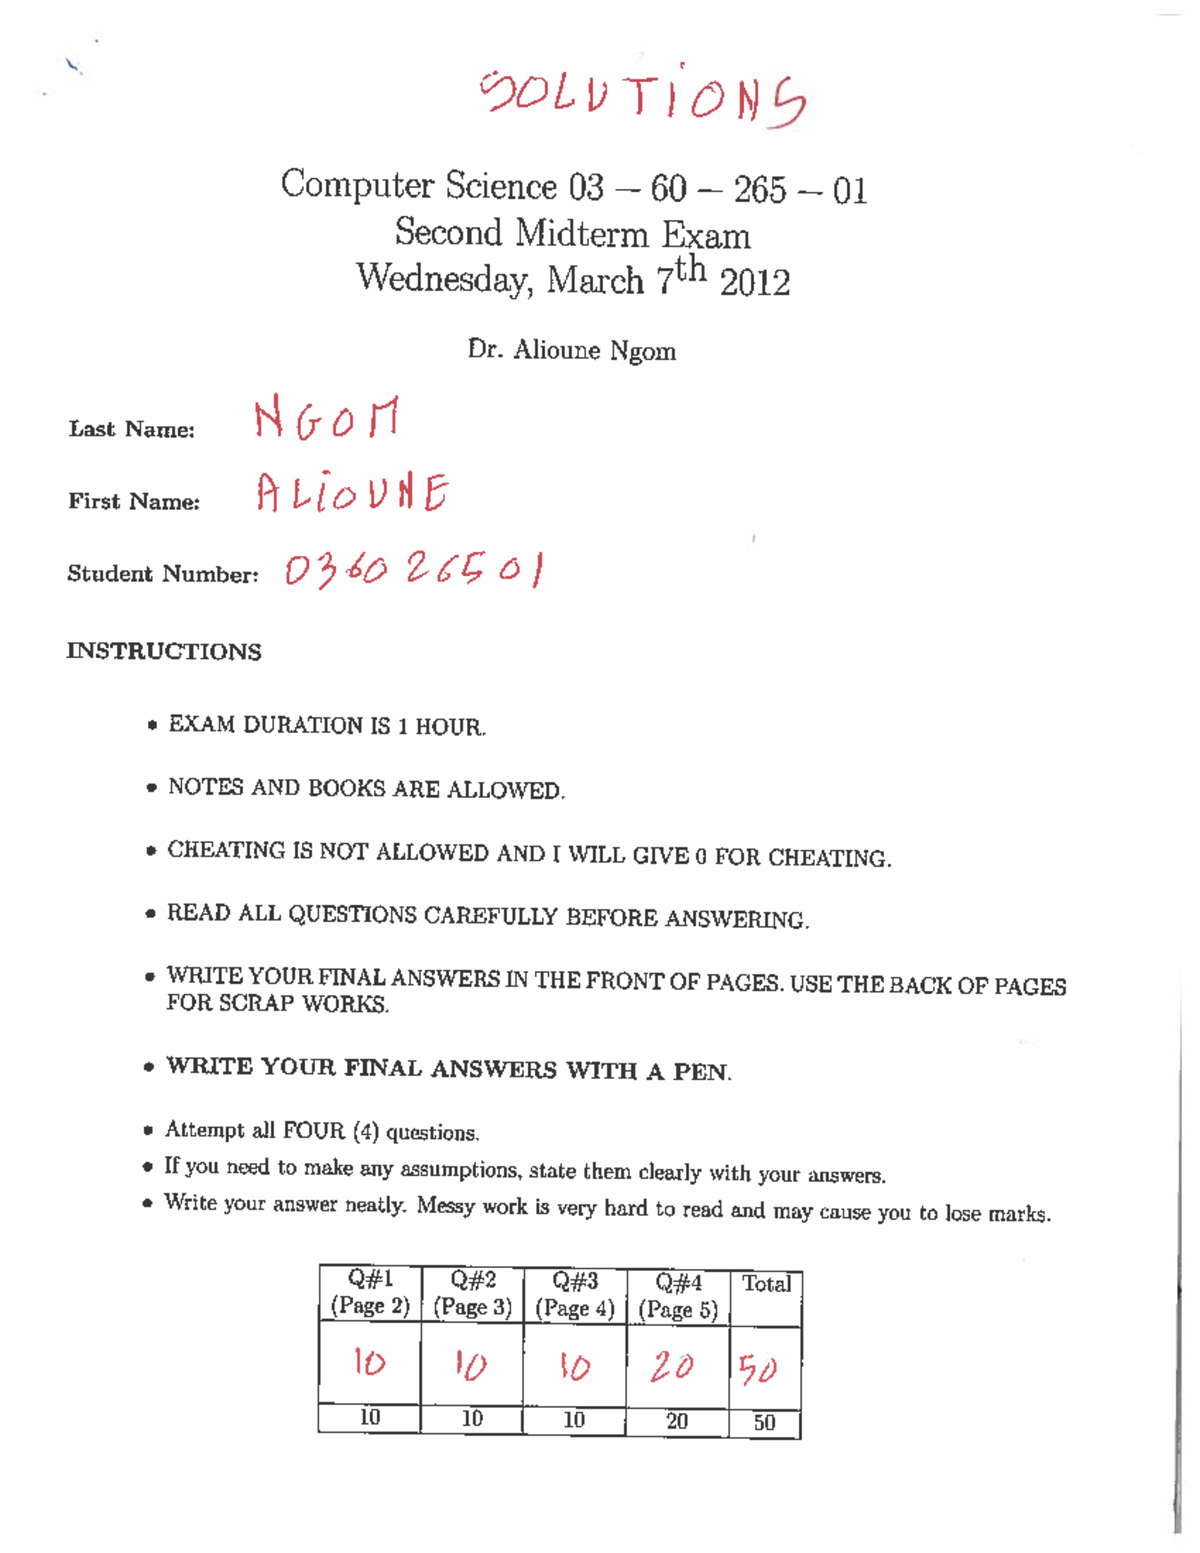 SOLUTIONS
Computer Science 03 – 60 – 265 – 01
Second Midterm Exam
Wednesday, March 7th 2012
Dr. Alioune Ngom
Last Name: NGOM
First Name: ALIOUNE
Student Number: 036026501
INSTRUCTIONS
• EXAM DURATION IS 1 HOUR.
• NOTES AND BOOKS ARE ALLOWED.
• CHEATING IS NOT ALLOWED AND I WILL GIVE 0 FOR CHEATING.
• READ ALL QUESTIONS CAREFULLY BEFORE ANSWERING.
• WRITE YOUR FINAL ANSWERS IN THE FRONT OF PAGES. USE THE BACK OF PAGES
FOR SCRAP WORKS.
• WRITE YOUR FINAL ANSWERS WITH A PEN.
• Attempt all FOUR (4) questions.
• If you need to make any assumptions, state them clearly with your answers.
• Write your answer neatly. Messy work is very hard to read and may cause you to lose marks.
Q#1 Q#2 Q#3 Q#4 Total
(Page 2) (Page 3) (Page 4) (Page 5)
10 10 10 20 50
10 10 10 20 50